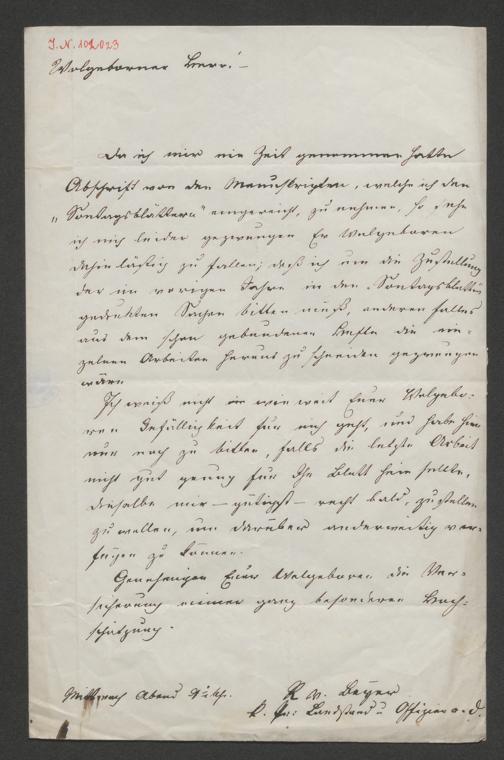 J. N. 102023
Wolgeborner Herr! –
Da ich mir nie Zeit genommen hatte
Abschrift von den Manuskripten, welche ich den
„Sontagsblättern“ eingereicht, zu nehmen, so sehe
ich mich leider gezwungen Ew Wolgeboren
dahin lästig zu fallen; daß ich um die Zustellung
der im vorigen Jahre in den Sontagsblättern
gedrukten Sachen bitten muß, anderen Falles
aus dem schon gebundenen Hefte die ein-
zelnen Arbeiten heraus zu schneiden gezwungen
wäre
Ich weiß nicht in wie weit Euer Wolgebo-
ren Gefälligkeit für mich geht, und habe hier
nur noch zu bitten, falls die letzte Arbeit
nicht gut genug für Ihr Blatt sein sollte,
dieselbe mir – gütigst – recht bald, zustellen
zu wollen, um darüber anderweitig ver-
fügen zu können.
Genehmigen Euer Wolgeboren die Ver-
sicherung meiner ganz besonderen Hoch-
schätzung.
Mittwoch Abend
R. v. Beyer
k. Landstand u Offizier a. d.